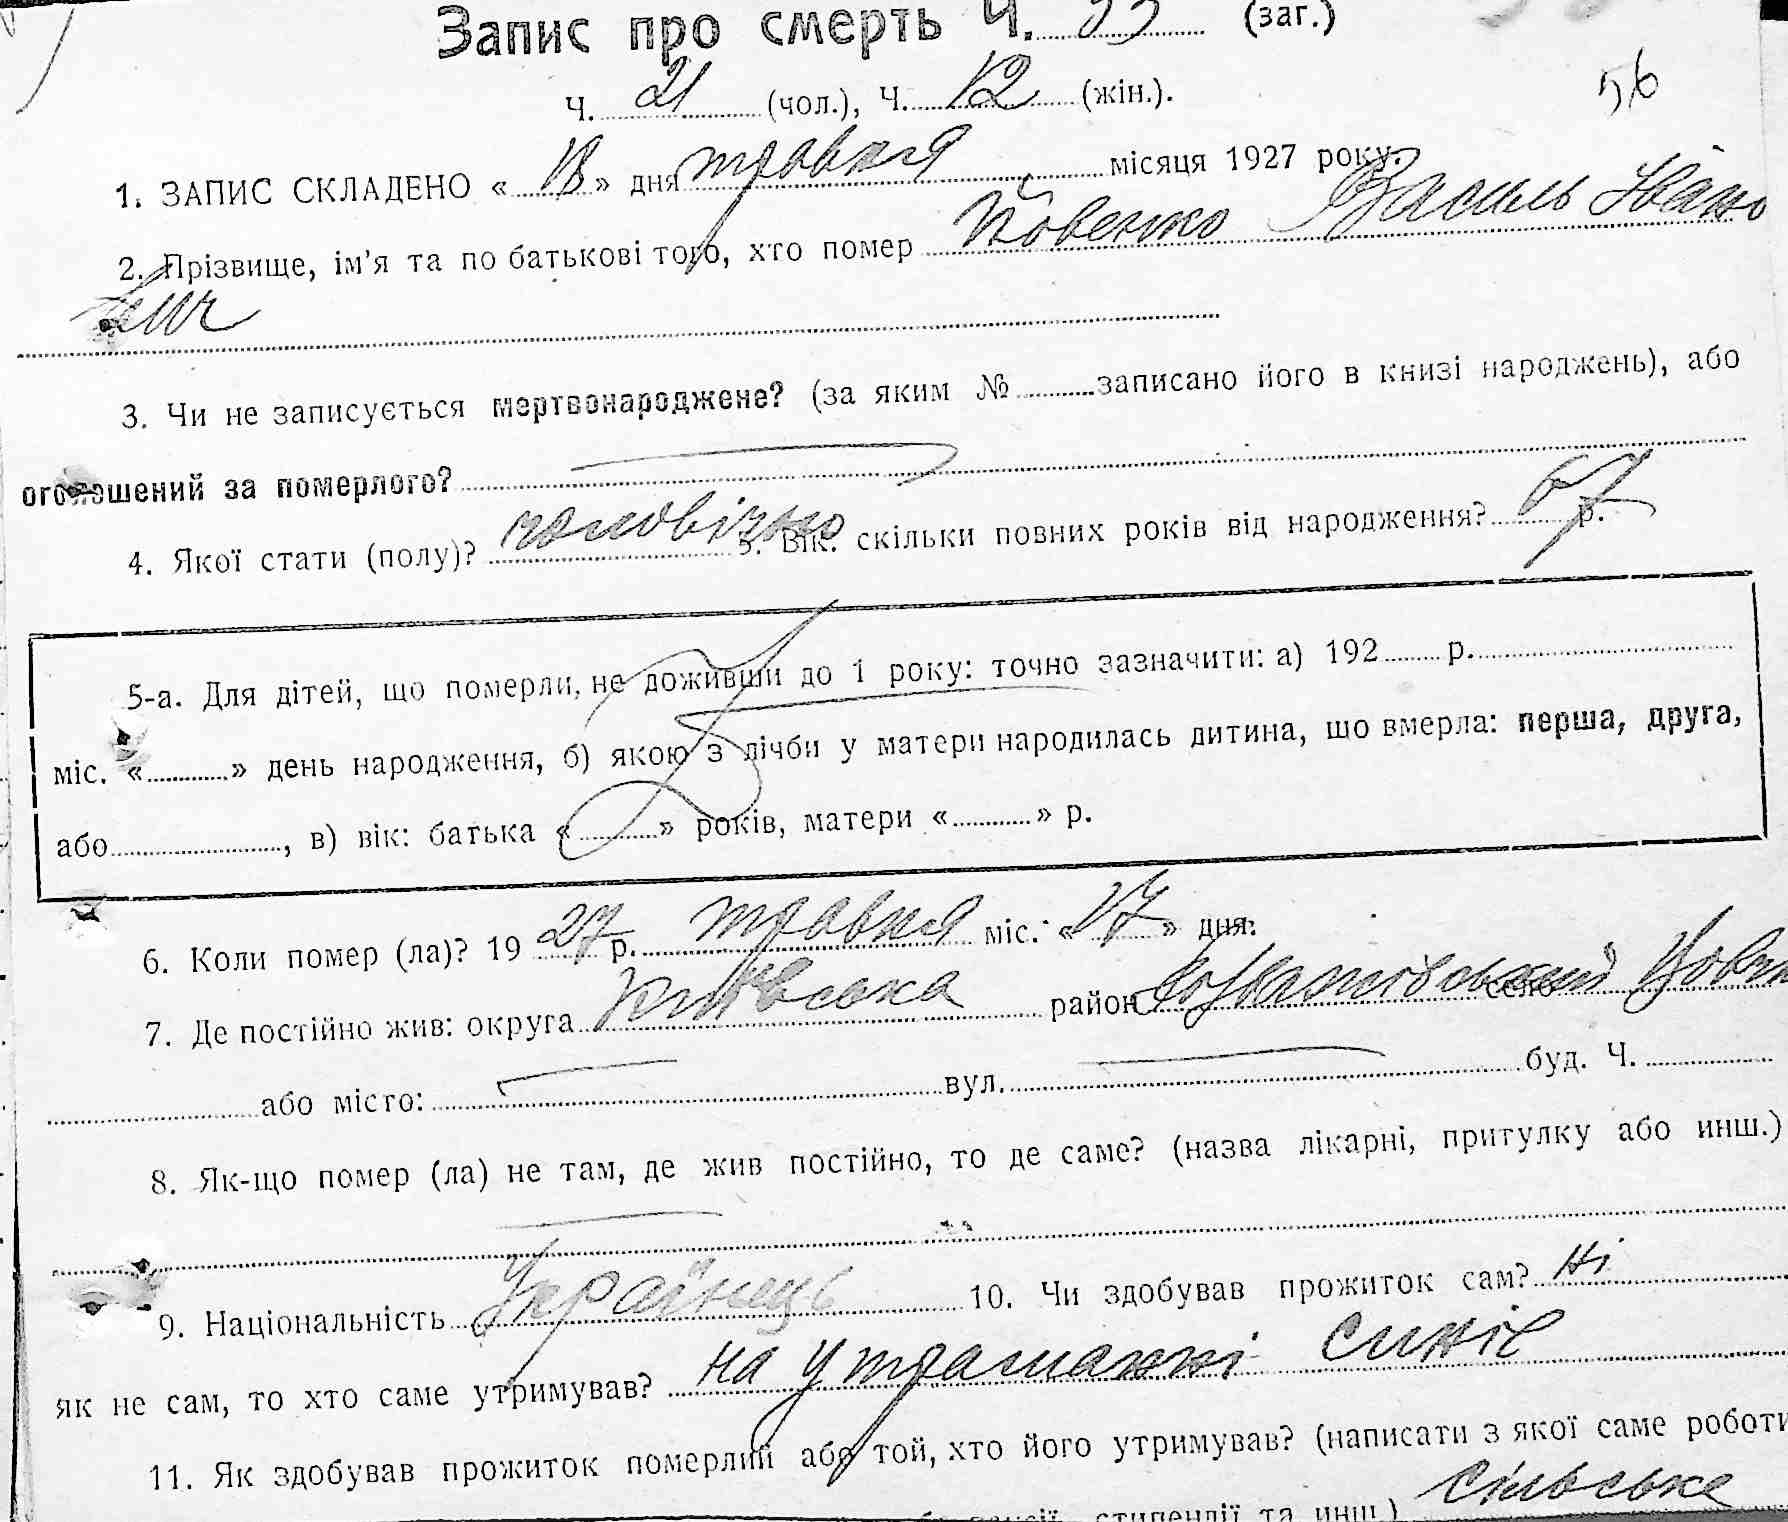 Запис про смерть Ч. 33 (заг.)
Ч. 21 (чол.), Ч. 12 (жін.).
56
1. ЗАПИС СКЛАДЕНО « 18 » дня травня місяця 1927 року.
2. Прізвище, ім'я та по батькові того, хто помер Йовенко Василь Івано
вич
3. Чи не записується мертвонароджене? (за яким № записано його в книзі народжень), або
оголошений за померлого?
4. Якої стати (полу)? чоловічно 5. Вік: скільки повних років від народження? 67 р.
5-а. Для дітей, що померли, не доживши до 1 року: точно зазначити: а) 192 р.
міс. « » день народження, б) якою з лічби у матери народилась дитина, що вмерла: перша, друга,
або , в) вік: батька « » років, матери « » р.
6. Коли помер (ла)? 19 27 р. травня міс. « 17 » дня.
7. Де постійно жив: округа Київська район село
або місто: вул. буд. Ч.
8. Як-що помер (ла) не там, де жив постійно, то де саме? (назва лікарні, притулку або инш.)
9. Національність Українець 10. Чи здобував прожиток сам? Ні
як не сам, то хто саме утримував? на утрамаккі синів
11. Як здобував прожиток померлий або той, хто його утримував? (написати з якої саме роботи
стипендії та инш.) сільське